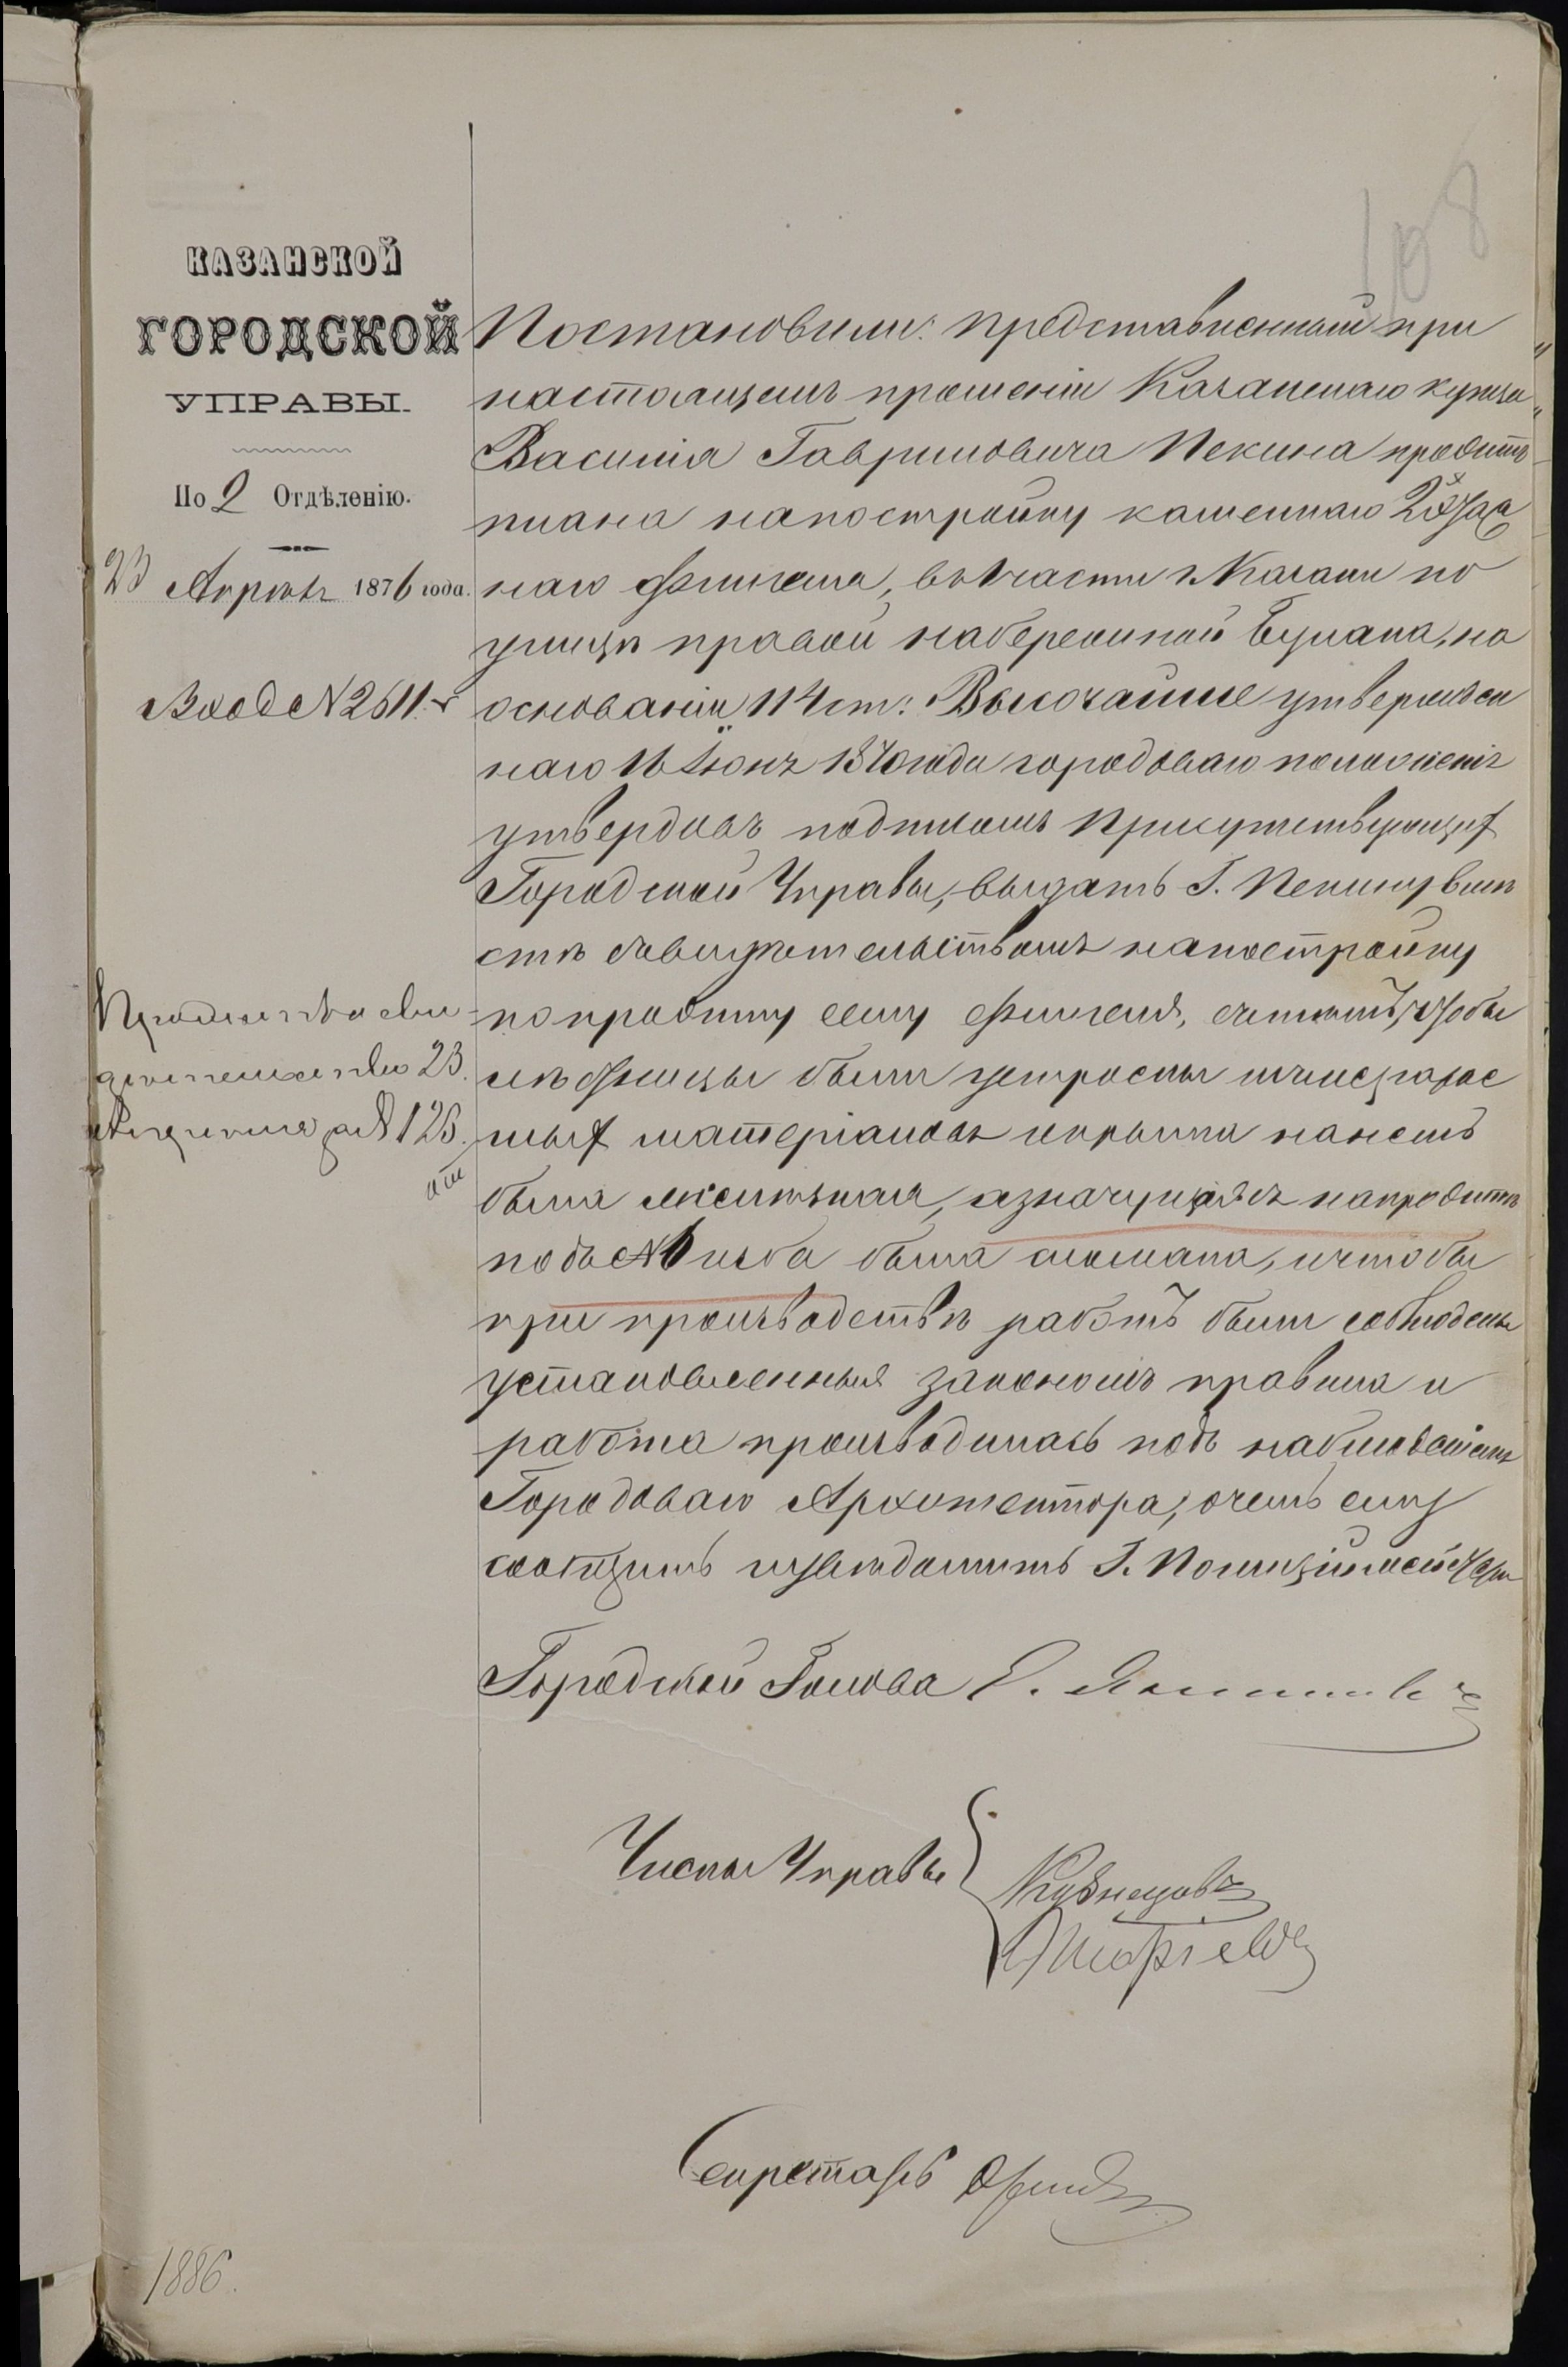 108
КАЗАНСКОЙ
ГОРОДСКОЙ
УПРАВЫ.
По 2 Отдѣленію.
23 Апрѣля 1876 года.
Вход № 2611.
Постановили: представленный при
настоящемъ прошеніи Казанскаго купца
Василія Гавриловича Пекина проэктъ
плана на постройку каменнаго 2хэтаж
наго флигеля, въ части г. Казани по
улицѣ правой набережной Булака, на
основаніи 114 ст: Высочайше утвержден
наго 16 Іюня 1870 года городоваго положенія
утвердивъ подписомъ Присутствующихъ
Городской Управы, выдать Г. Пекину вмѣ
стѣ съ свидѣтельствомъ на постройку
по проэкту сему флигеля, съ тѣмъ, чтобы
службы были устроены изъ несгарае
мыхъ матеріаловъ и крыша на немъ
была желѣзная, а значущаяся на проэктѣ
подъ № 6 изба была сломана, и чтобы
при производствѣ работъ были соблюдены
установленныя закономъ правила и
работа производилась подъ наблюденіемъ
Городоваго Архитектора, о чемъ ему
сообщить и увѣдомить Г. Полиціймейстера
23.
№ 125.
Городской Голова Е.
Члены Управы
Кузнецовъ
Секретарь
1886.